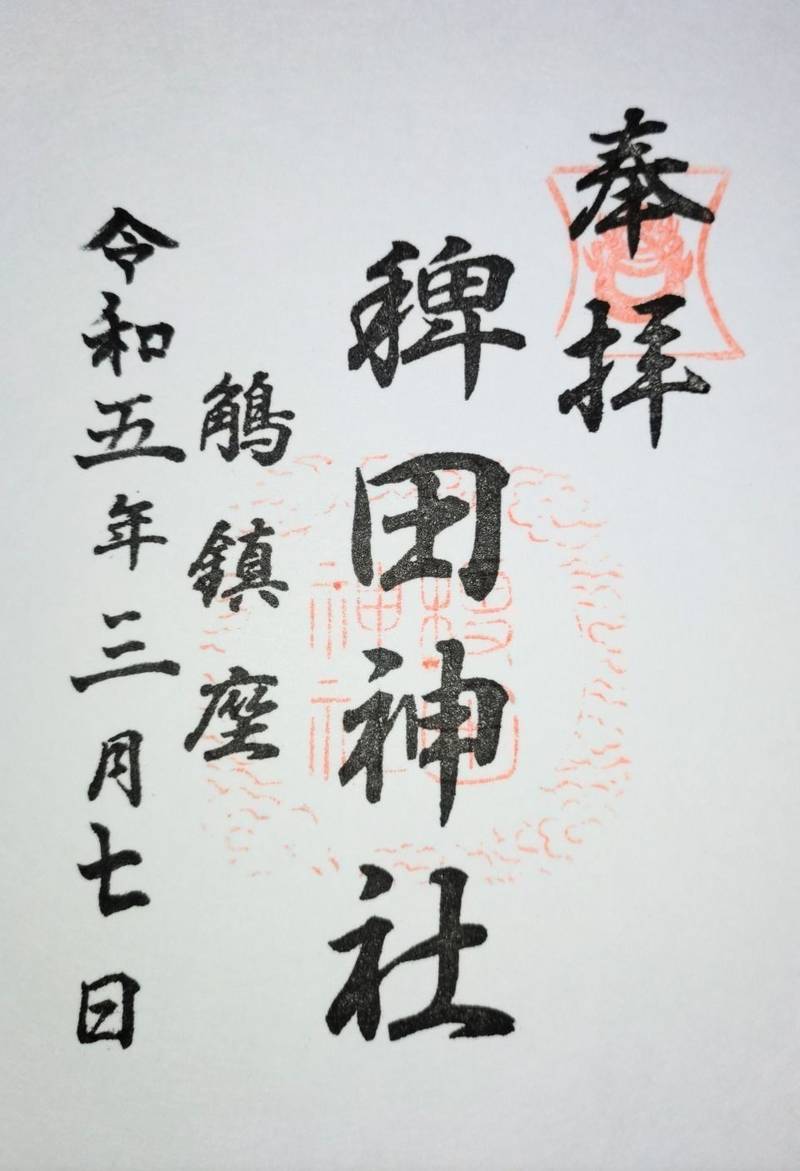 奉拝
稗田神社
鵤鎮座
令和五年三月七日